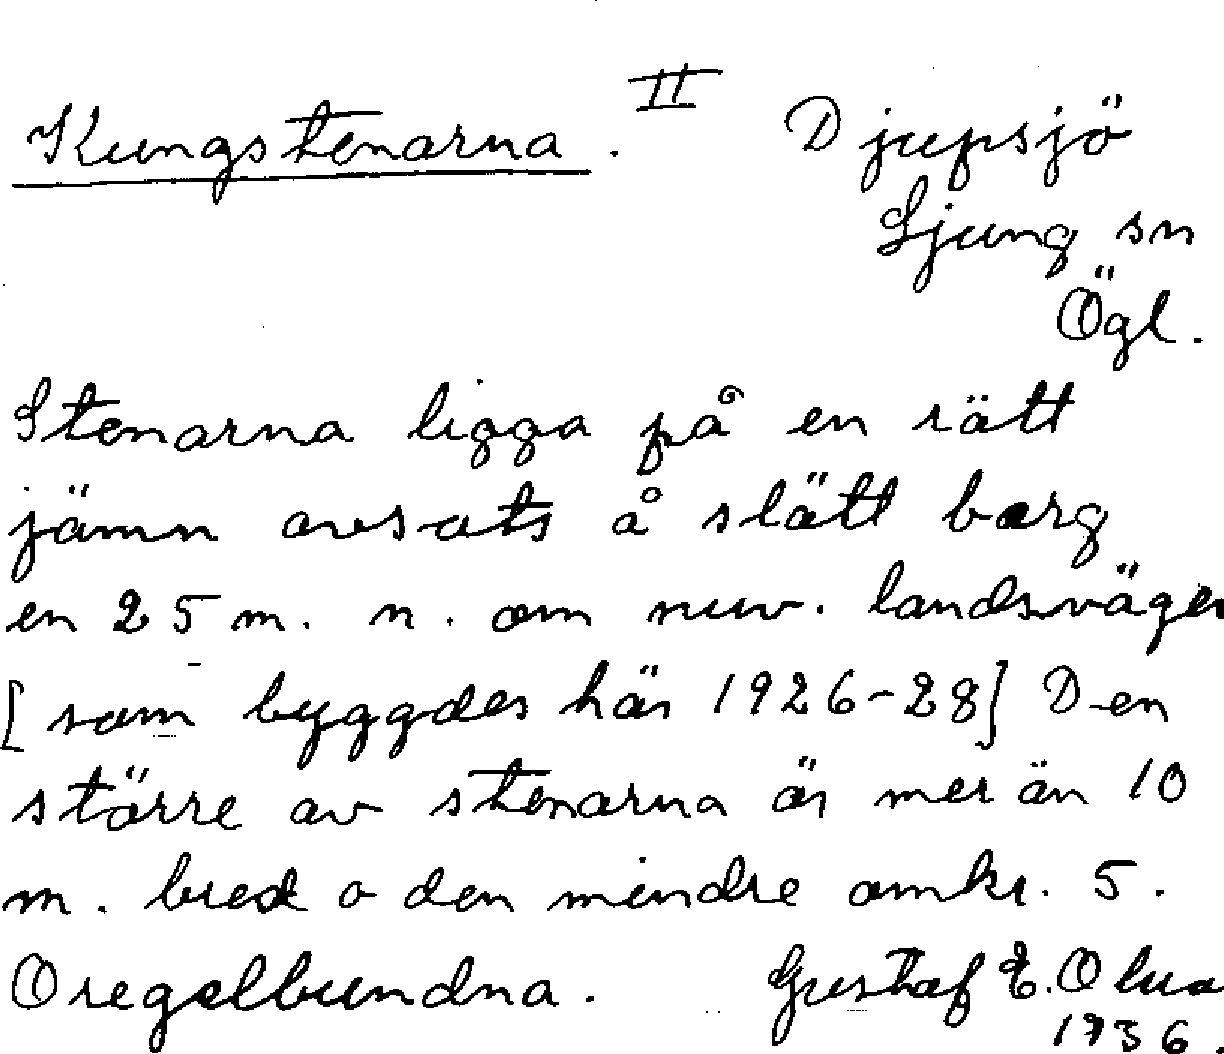 Kungstenarna. II Djupsjö
Ljung sn
Ögl.
Stenarna ligga på en rätt
jämn avsats å slätt berg
en 25 m. n. om nuv. landsvägen
[som byggdes här 1926-28] Den
större av stenarna är mer än 10
m. bred o den mindre omkr. 5.
Oregelbundna. Gustaf E.
1936.